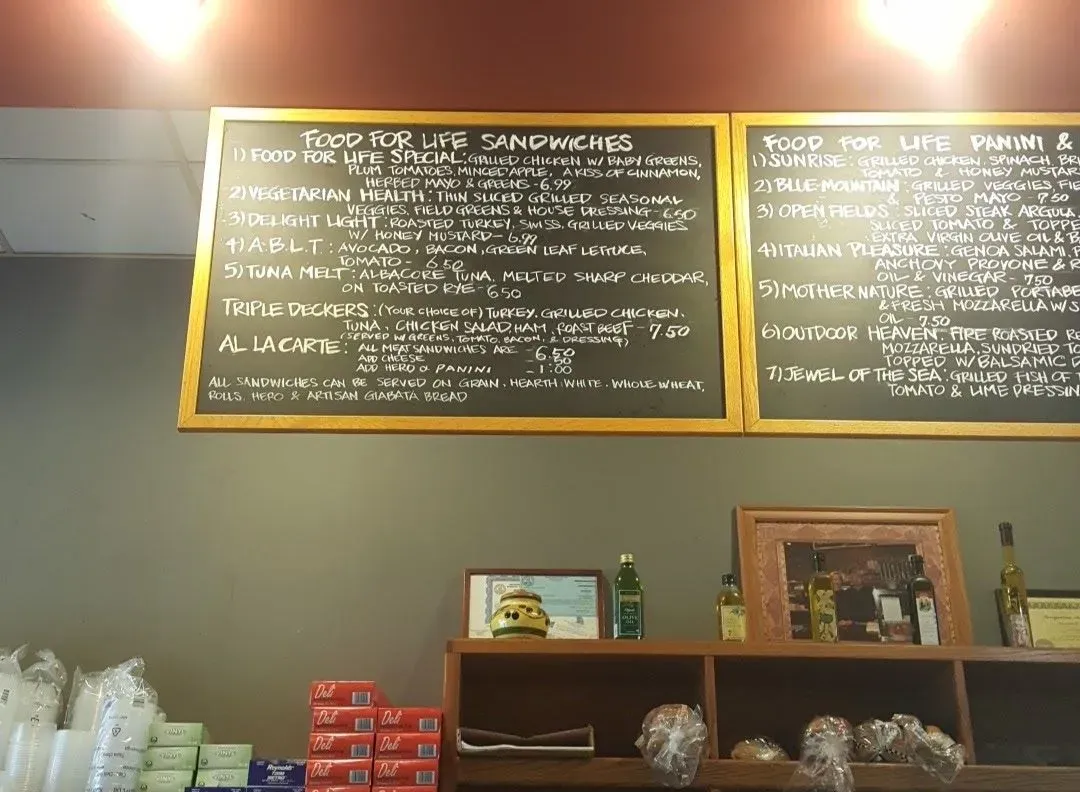 FOOD FOR LIFE SANDWICHES
1) FOOD FOR LIFE SPECIAL: GRILLED CHICKEN W/ BABY GREENS,
PLUM TOMATOES, MINCED APPLE, A KISS OF CINNAMON,
HERBED MAYO & GREENS - 6.99
2) VEGETARIAN HEALTH: THIN SLICED GRILLED SEASONAL
VEGGIES, FIELD GREENS & HOUSE DRESSING - 6.50
3) DELIGHT LIGHT: ROASTED TURKEY, SWISS, GRILLED VEGGIES
W/ HONEY MUSTARD - 6.99
4) A.B.L.T: AVOCADO, BACON, GREEN LEAF LETTUCE,
TOMATO - 6.50
5) TUNA MELT: ALBACORE TUNA, MELTED SHARP CHEDDAR,
ON TOASTED RYE - 6.50
TRIPLE DECKERS: (YOUR CHOICE OF) TURKEY, GRILLED CHICKEN,
TUNA, CHICKEN SALAD, HAM, ROAST BEEF - 7.50
(SERVED W/ GREENS, TOMATO, BACON, & DRESSING)
AL LA CARTE: ALL MEAT SANDWICHES ARE - 6.50
ADD CHEESE - .60
ADD HERO or PANINI - 1.00
ALL SANDWICHES CAN BE SERVED ON GRAIN, HEARTH WHITE, WHOLE WHEAT,
ROLLS, HERO & ARTISAN CIABATA BREAD
FOOD FOR LIFE PANINI &
1) SUNRISE: GRILLED CHICKEN, SPINACH, BRI
TOMATO & HONEY MUSTAR
2) BLUE MOUNTAIN: GRILLED VEGGIES, FIE
& PESTO MAYO - 7.50
3) OPEN FIELDS: SLICED STEAK ARGULA,
SLICED TOMATO & TOPPE
EXTRA VIRGIN OLIVE OIL & B
4) ITALIAN PLEASURE: GENOA SALAMI, P
ANCHOVY PROVONE & R
OIL & VINEGAR - 7.50
5) MOTHER NATURE: GRILLED PORTABE
& FRESH MOZZARELLA W S
OIL - 7.50
6) OUTDOOR HEAVEN: FIRE ROASTED RE
MOZZARELLA, SUNDRIED TO
TOPPED W/ BALSAMIC D
7) JEWEL OF THE SEA: GRILLED FISH OF T
TOMATO & LIME DRESSIN
OLIVE OIL
Deli
Deli
Deli
Deli
Deli
Deli
Deli
Reynolds